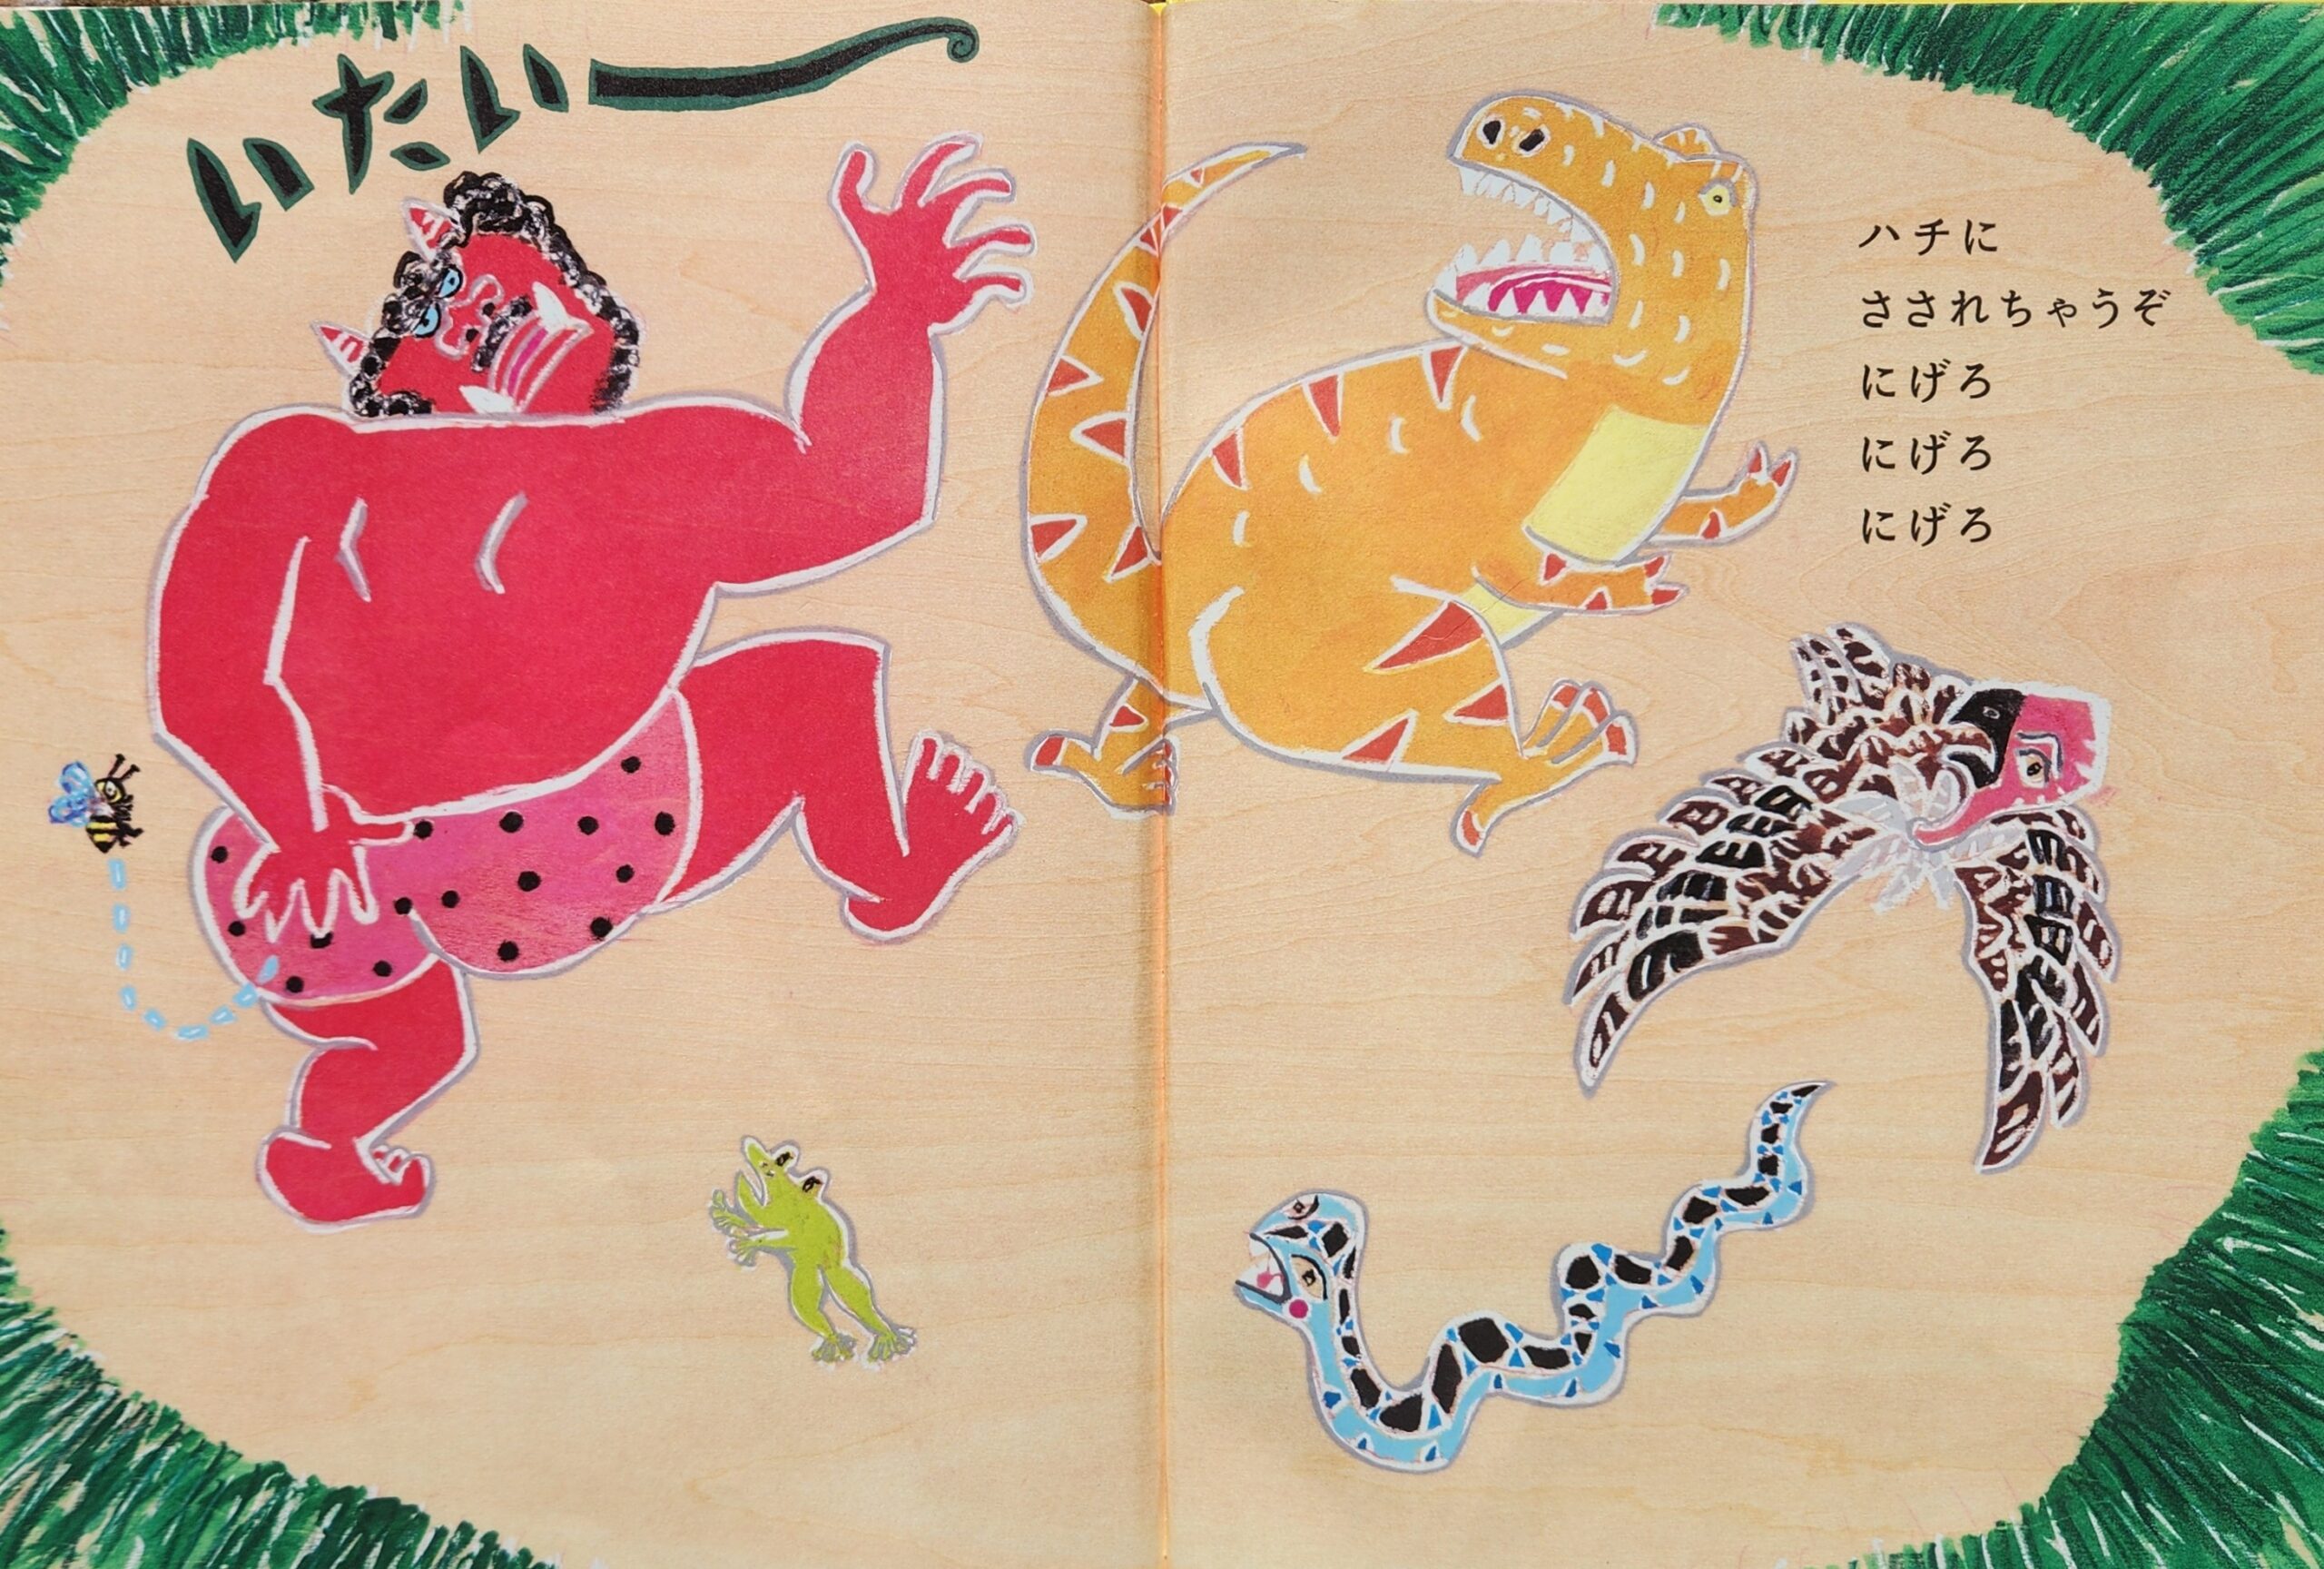 いたいー
ハチに
さされちゃうぞ
にげろ
にげろ
にげろ